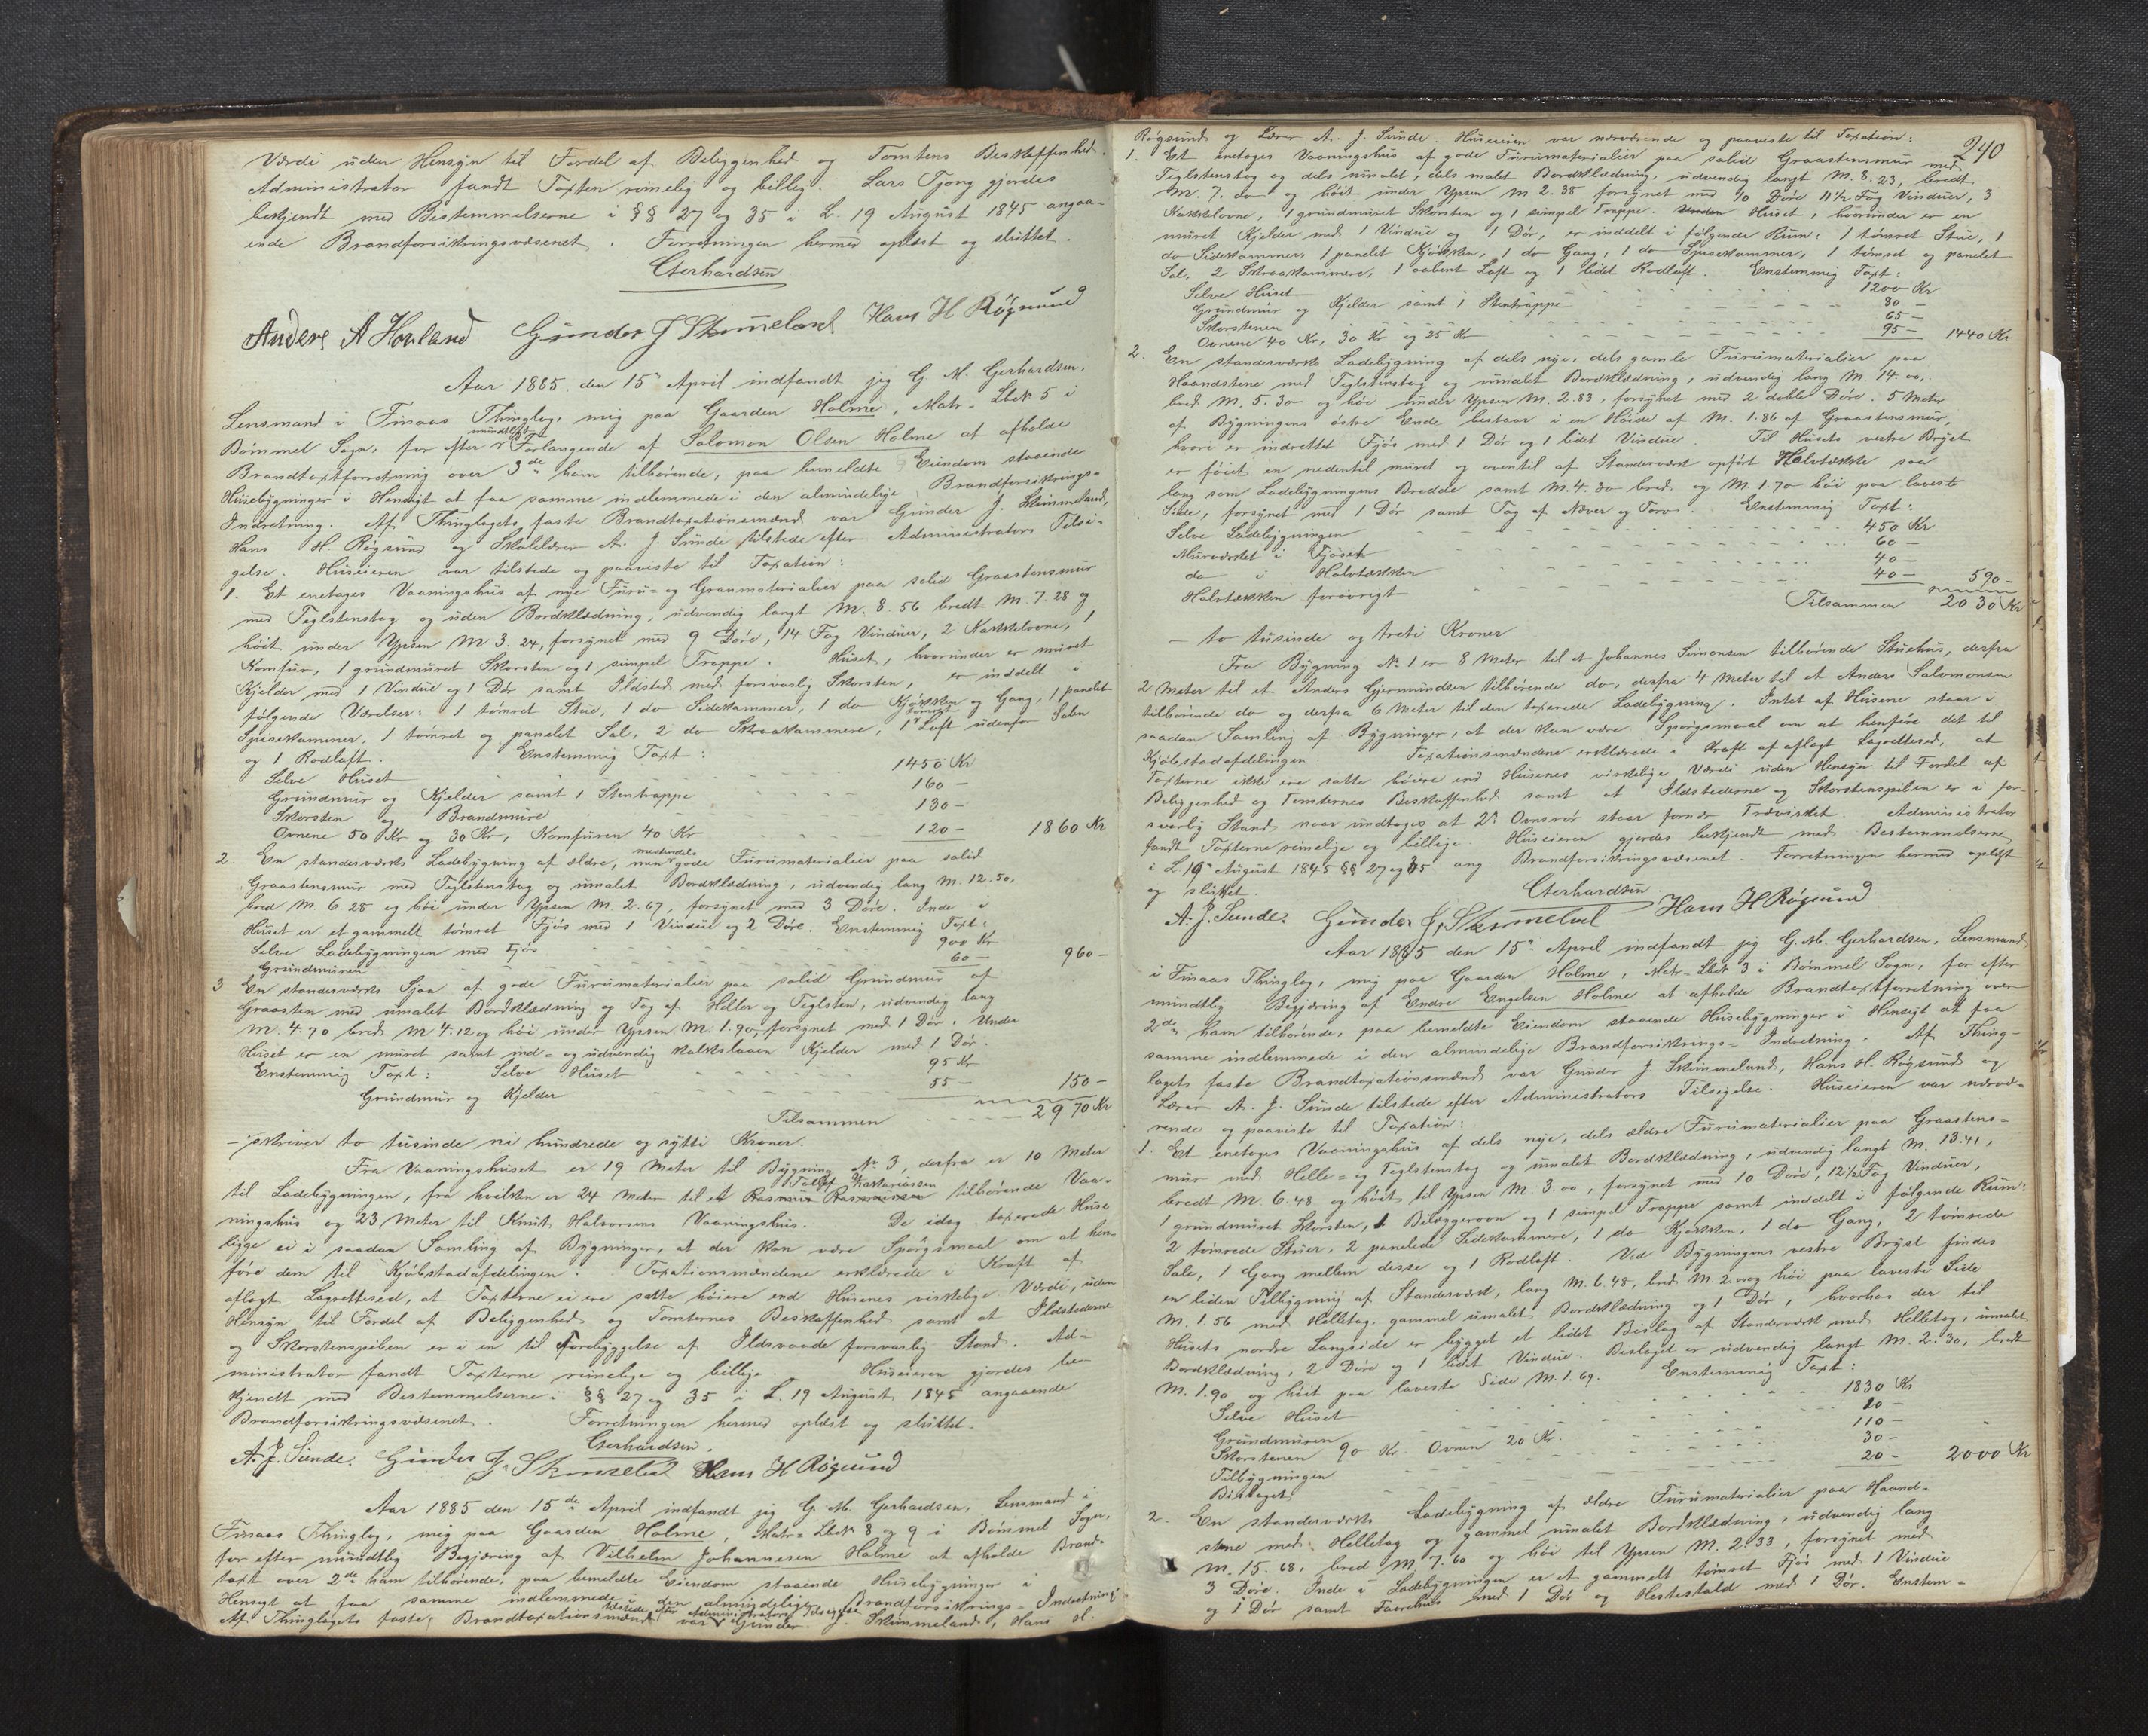 Værdi uden Hensyn til Fordel af Beliggenhed og Tomtens Beskaffenhed.
Administrator fandt Taxten rimelig og billig. Lars Tjong gjordes
bekjendt med Bestemmelserne i §§ 27 og 35 i L. 19 August 1845 angaa-
ende Brandforsikringsvæsenet. Forretningen hermed oplæst og sluttet.
Gerhardsen.
Anders A Hovland Gunder J Skimeland Hans H Røgsund
Aar 1885 den 15de April indfandt jeg G. M. Gerhardsen,
Lensmand i Finaas Thinglag, mig paa Gaarden Holme, Matr- Lbek 5 i
Bømmel Sogn, for efter mundtligt Forlangende af Salomon Olsen Holme at afholde
Brandtaxtforretning over 3de ham tilhørende, paa bemeldte Eiendom staaende
Husebygninger i Hensigt at faa samme indlemmede i den almindelige Brandforsikrings-
Indretning. Af Thinglagets faste Brandtaxationsmænd var Gunder J. Skimmeland,
Hans H. Røgsund og Skolelærer A. J. Sunde tilstede efter Administrators Tilsi-
gelse. Huseieren var tilstede og paaviste til Taxation:
1. Et enetages Vaaningshus af nye Furu- og Granmaterialier paa solid Graastensmur
med Teglstenstag og uden Bordklædning, udvendig langt M. 8.56 bredt M. 7.28 og
høit under Ypsen M 3.24, forsynet med 9 Døre, 14 Fag Vinduer, 2 Kakkelovne, 1
Komfur, 1 grundmuret Skorsten og 1 simpel Trappe. Huset, hvorunder er muret
Kjelder med 1 Vindue og 1 Dør samt Ildsted med forsvarlig Skorsten, er inddelt i
følgende Værelser: 1 tømret Stue, 1 do Sidekammer, 1 do Kjøkken og Gang, 1 panelet
Spisekammer, 1 tømret og panelet Sal, 2 do Skraakammere, 1 tømret Loft udenfor Salen
og 1 Rodloft. Enstemmig Taxt:
Selve Huset 1450 Kr
Grundmur og Kjelder samt 1 Stentrappe 160 -
Skorsten og Brandmure 130 -
Ovnene 50 Kr og 30 Kr, Komfuren 40 Kr 120 - 1860 Kr
2. En standerværks Ladebygning af ældre, men mestendels gode Furumaterialier paa solid
Graastensmur med Teglstenstag og umalet Bordklædning, udvendig lang M. 12.50,
bred M. 6.28 og høi under Ypsen M. 2.67, forsynet med 3 Døre. Inde i
Huset er et gammelt tømret Fjøs med 1 Vindue og 2 Døre. Enstemmig Taxt:
Selve Ladebygningen med Fjøs 900 Kr
Grundmuren 60 - 960 -
3 En standerværks Sjaa af gode Furumaterialier paa solid Grundmur af
Graasten med umalet Bordklædning og Tag af Heller og Teglsten, udvendig lang
M. 4.70 bred M 4.12 og høi under Ypsen M. 1.90, forsynet med 1 Dør. Under
Huset er en muret samt ind- og udvendig kalkslaaen Kjelder med 1 Dør.
Enstemmig Taxt: Selve Huset 95 Kr
Grundmur og Kjelder 55 - 150 -
Tilsammen 2970 Kr
- skriver to tusinde ni hundrede og sytti Kroner.
Fra Vaaningshuset er 19 Meter til Bygning No 3, derfra er 10 Meter
til Ladebygningen, fra hvilken er 24 Meter til et Rasmus Rasmussen tilhørende Vaa-
ningshus og 23 Meter til Knut Halvorsens Vaaningshus. De idag taxerede Huse
ligge ei i saadan Samling af Bygninger, at der kan være Spørgsmaal om at hen-
føre dem til Kjøbstadafdelingen. Taxationsmændene erklærede i Kraft af
aflagt Lagrettesed, at Taxterne ei ere satte høiere end Husenes virkelige Værdi, uden
Hensyn til Fordel af Beliggenhed og Tomternes Beskaffenhed samt at Ildstederne
og Skorstenspiben er i en til Forebyggelse af Ildsvaade forsvarlig Stand. Ad-
ministrator fandt Taxterne rimelige og billige. Huseieren gjordes be-
kjendt med Bestemmelserne i §§ 27 og 35 i L. 19 August 1845 angaaende
Brandforsikringsvæsenet. Forretningen hermed oplæst og sluttet.
Gerhardsen.
A. J. Sunde. Gunder J. Skimeland Hans H Røgsund
Aar 1885 den 15de April indfandt jeg G. M. Gerhardsen, Lensmand i
Finaas Thinglag, mig paa Gaarden Holme, Matr- Lbek 8 og 9 i Bømmel Sogn,
for efter mundtlig Begjæring af Vilhelm Johannesen Holme at afholde Brand-
taxt over 2de ham tilhørende, paa bemeldte Eiendom staaende Husebygninger i
Hensigt at faa samme indlemmede i den almindelige Brandforsikrings-Indretning
Af Thinglagets faste Brandtaxationsmænd var tilstede efter Administrators Tilsigelse Gunder J. Skimmeland, Hans H.
240
Røgsund og Lærer A. J. Sunde. Huseieren var nærværende og paaviste til Taxation:
1. Et enetages Vaaningshus af gode Furumaterialier paa solid Graastensmur med
Teglstenstag og dels umalet, dels malet Bordklædning, udvendig langt M. 8.23, bredt
M. 7. do og høit under Ypsen M 2.38 forsynet med 10 Døre 11½ Fag Vinduer, 3
Kakkelovne, 1 grundmuret Skorsten og 1 simpel Trappe. Huset, hvorunder er en
muret Kjelder med 1 Vindue og 1 Dør, er inddelt i følgende Rum: 1 tømret Stue, 1
do Sidekammers 1 panelet Kjøkken, 1 do Gang, 1 do Spisekammer, 1 tømret og panelet
Sal, 2 Skraakammere, 1 aabent Loft og 1 lidet Rodloft. Enstemmig Taxt:
Selve Huset 1200 Kr
Grundmur og Kjelder samt 1 Stentrappe 80 -
Skorstenen 65 -
Ovnene 40 Kr, 30 Kr og 25 Kr 95 - 1440 Kr
2. En standerværks Ladebygning af dels nye, dels gamle Furumaterialier paa
Haandstene med Teglstenstag og umalet Bordklædning, udvendig lang M. 14.00,
bred M. 5.30 og høi under Ypsen M. 2.83, forsynet med 2 doble Døre. 5 Meter
af Bygningens østre Ende bestaar i en Høide af M. 1.86 af Graastensmur,
hvori er indrettet Fjøs med 1 Dør og 1 lidet Vindue. Til Husets vestre Bryst
er føiet en nedentil muret og oventil af Standerværk opført Halvtække saa
lang som Ladebygningens Bredde samt M. 4.30 bred og M. 1.70 høi paa laveste
Side, forsynet med 1 Dør samt Tag af Næver og Torv. Enstemmig Taxt:
Selve Ladebygningen 450 Kr
Murværket i Fjøset 60 -
do i Halvtækken 40 -
Halvtækken forøvrigt 40 - 590 -
Tilsammen 2030 Kr
- to tusinde og treti Kroner
Fra Bygning No 1 er 8 Meter til et Johannes Simonsen tilhørende Stuehus, derfra
2 Meter til et Anders Gjermundsen tilhørende do, derfra 4 Meter til et Anders Salomonsen
tilhørende do og derfra 6 Meter til den taxerede Ladebygning. Intet af Husene staar i
saadan Samling af Bygninger, at der kan være Spørgsmaal om at henføre det til
Kjøbstadafdelingen. Taxationsmændene erklærede i Kraft af aflagt Lagrettesed, at
Taxterne ikke ere satte høiere end Husenes virkelige Værdi uden Hensyn til Fordel af
Beliggenhed og Tomternes Beskaffenhed samt at Ildstederne og Skorstenspiben er i for-
svarlig Stand, naar undtages at 2de Ovnsrør staar for nær Træværket. Administrator
fandt Taxterne rimelige og billige. Huseieren gjordes bekjendt med Bestemmelserne
i L. 19de August 1845 §§ 27 og 35 ang. Brandforsikringsvæsenet. Forretningen hermed oplæst
og sluttet.
Gerhardsen.
A. J. Sunde. Gunder J. Skimeland Hans H Røgsund
Aar 1885 den 15de April indfandt jeg G. M. Gerhardsen, Lensmand
i Finaas Thinglag, mig paa Gaarden Holme, Matr- Lbek 3 i Bømmel Sogn, for efter
mundtlig Begjæring af Endre Engelsen Holme at afholde Brandtaxtforretning over
2de ham tilhørende, paa bemeldte Eiendom staaende Husebygninger i Hensigt at faa
samme indlemmede i den almindelige Brandforsikrings-Indretning. Af Thing-
lagets faste Brandtaxationsmænd var Gunder J. Skimmeland, Hans H. Røgsund og
Lærer A. J. Sunde tilstede efter Administrators Tilsigelse. Huseieren var nærvæ-
rende og paaviste til Taxation:
1. Et enetages Vaaningshus af dels nye, dels ældre Furumaterialier paa Graastens-
mur med Helle- og Teglstenstag og umalet Bordklædning, udvendig langt M. 13.41,
bredt M 6.48 og høit til Ypsen M. 3.00, forsynet med 10 Døre, 12½ Fag Vinduer,
1 grundmuret Skorsten, 1 Bilæggerovn og 1 simpel Trappe samt inddelt i følgende Rum:
2 tømrede Stuer, 2 panelede Sidekammere, 1 do Kjøkken, 1 do Gang, 2 tømrede
Sale, 1 Gang mellem disse og 1 Rodloft. Ved Bygningens vestre Bryst findes
en liden Tilbygning af Standerværk, lang M. 6.48, bred M. 2.00 og høi paa laveste Side
M. 1.56 med Helletag, gammel umalet Bordklædning og 1 Dør, hvorhos der til
Husets nordre Langside er bygget et lidet Bislag af Standerværk med Helletag, umalet
Bordklædning, 2 Døre og 1 lidet Vindue. Bislaget er udvendig langt M. 2.30, bredt
M. 1.90 og høit paa laveste Side M. 1.69. Enstemmig Taxt:
Selve Huset 1830 Kr
Grundmuren 10 -
Skorstenen 90 Kr. Ovnen 20 Kr. 110 -
Tilbygningen 30 -
Bislaget 20 - 2000 Kr
2. En standerværks Ladebygning af ældre Furumaterialier paa Haand-
stene med Helletag og gammel umalet Bordklædning, udvendig lang
M. 15.68, bred M. 7.60 og høi til Ypsen M. 2.33, forsynet med
3 Døre. Inde i Ladebygningen er et gammelt tømret Fjøs med 1 Vindue
og 1 Dør samt Faarehus med 1 Dør og Hestestald med 1 Dør. Enstem-